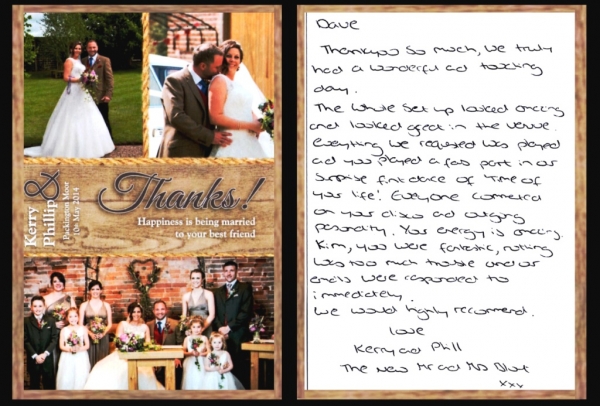 Kerry
&
Phillip
Packington Moor
10th May 2014
Thanks!
Happiness is being married
to your best friend
Dave
Thankyou so much, we truly
had a wonderful and touching
day.
The whole set up looked amazing
and looked great in the venue.
Everything we requested was played
and you played a fab part in our
surprise first dance of 'Time of
your life'. Everyone commented
on your disco and outgoing
personality. Your energy is amazing.
Kim, you were fantastic, nothing
was too much trouble and our
emails were responded to
immediately.
We would highly recommend.
love
Kerry and Phill
The New Mr and Mrs
xxx